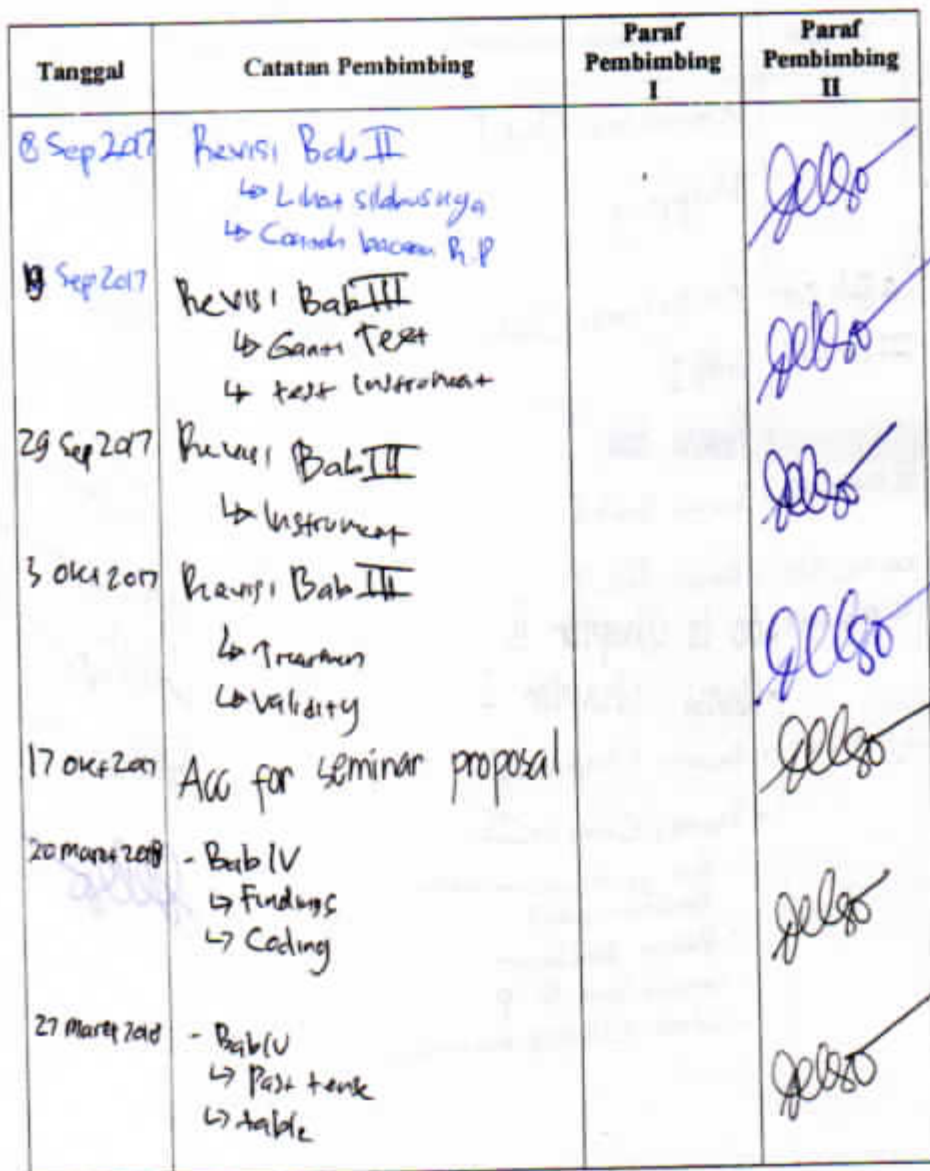 Tanggal
Catatan Pembimbing
Paraf
Pembimbing
I
Paraf
Pembimbing
II
8 Sep 2017 Revisi Bab II
↳ Lihat silabusnya
↳ Contoh bacaan R.P
Sep 2017 Revisi Bab III
↳ Ganti Test
↳ test Instrument
29 Sep 2017 Revisi Bab III
↳ Instrument
3 Okt 2017 Revisi Bab III
↳ Treatmen
↳ Validity
17 Okt 2017 Acc for seminar proposal
20 Maret 2018 - Bab IV
↳ Findings
↳ Coding
27 Maret 2018 - Bab IV
↳ Past tense
↳ table